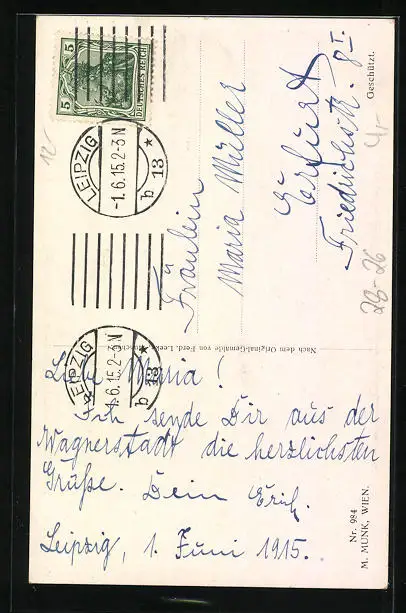 5 DEUTSCHES REICH 5
LEIPZIG
-1.6.15.2-3N
* b 13
LEIPZIG
-1.6.15.2-3N
* b 13
Fräulein
Maria Müller
Erfurt
Friedrichstr. 8 I.
Geschützt.
12.-
4,-
28-26
Nach dem Original-Gemälde von Ferd. Leeke, München
Liebe Maria!
Ich sende Dir aus der
Wagnerstadt die herzlichsten
Grüße. Dein Erich.
Leipzig, 1. Juni 1915.
Nr. 984
M. MUNK, WIEN.